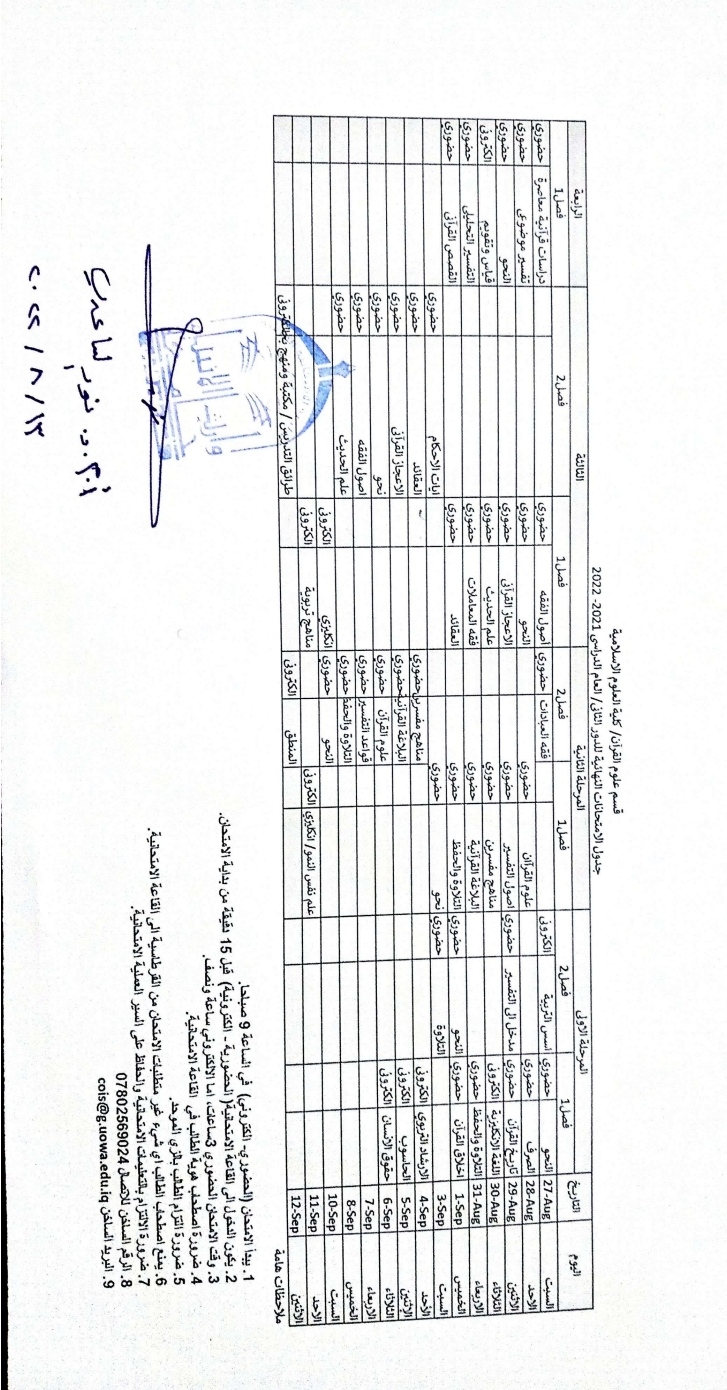 قسم علوم القرآن/ كلية العلوم الاسلامية
جدول الامتحانات النهائية للدور الثاني/ العام الدراسي 2021- 2022
اليوم التاريخ المرحلة الاولى المرحلة الثانية الثالثة الرابعة
فصل1 فصل2 فصل1 فصل2 فصل1 فصل2 فصل1
السبت 27-Aug النحو حضوري اسس التربية الكتروني فقه العبادات حضوري اصول الفقه حضوري دراسات قرآنية معاصرة حضوري
الاحد 28-Aug الصرف حضوري علوم القرآان حضوري النحو حضوري تفسير موضوعي حضوري
الاثنين 29-Aug تاريخ القرآن حضوري مدخل الى التفسير حضوري اصول التفسير حضوري الاعجاز القرآني حضوري النحو حضوري
الثلاثاء 30-Aug اللغة الانكليزية الكتروني مناهج مفسرين حضوري علم الحديث حضوري قياس وتقويم الكتروني
الاربعاء 31-Aug التلاوة والحفظ حضوري البلاغة القرآنية حضوري فقه المعاملات حضوري التفسير التحليلي حضوري
الخميس 1-Sep اخلاق القرآن حضوري النحو حضوري التلاوة والحفظ حضوري العقائد حضوري القصص القرآني حضوري
السبت 3-Sep التلاوة حضوري نحو حضوري ايات الاحكام حضوري
الأحد 4-Sep الارشاد التربوي الكتروني مناهج مفسرين حضوري العقائد حضوري
الاثنين 5-Sep الحاسوب الكتروني البلاغة القرآنية حضوري الاعجاز القرآني حضوري
الثلاثاء 6-Sep حقوق الانسان الكتروني علوم القرآن حضوري نحو حضوري
الاربعاء 7-Sep قواعد التفسير حضوري اصول الفقه حضوري
الخميس 8-Sep التلاوة والحفظ حضوري علم الحديث حضوري
السبت 10-Sep النحو حضوري انكليزي الكتروني
الاحد 11-Sep علم نفس النمو/ انكليزي الكتروني مناهج تربوية الكتروني
الاثنين 12-Sep المنطق الكتروني طرائق التدريس/ مكتبة ومنهج بحث الكتروني
ملاحظات هامة
1. يبدأ الامتحان (الحضوري- الكتروني) في الساعة 9 صباحا.
2. يكون الدخول الى القاعة الامتحانية( الحضورية - الكترونية) قبل 15 دقيقة من بداية الامتحان.
3. وقت الامتحان الحضوري 3ساعات، اما الالكتروني ساعة ونصف.
4. ضرورة اصطحاب هوية الطالب في القاعة الامتحانية.
5. ضرورة التزام الطالب بالزي الموحد.
6. يمنع اصطحاب الطالب اي شيء غير متطلبات الامتحان من القرطاسية الى القاعة الامتحانية.
7. ضرورة الالتزام بالتعليمات الامتحانية والحفاظ على السير العملية الامتحانية.
8. الرقم الساخن للاتصال 07802569024
9. البريد الساخن cois@g.uowa.edu.iq
أ.م.د. نور الساعدي
٢٠٢٢ / ٨ / ١٣